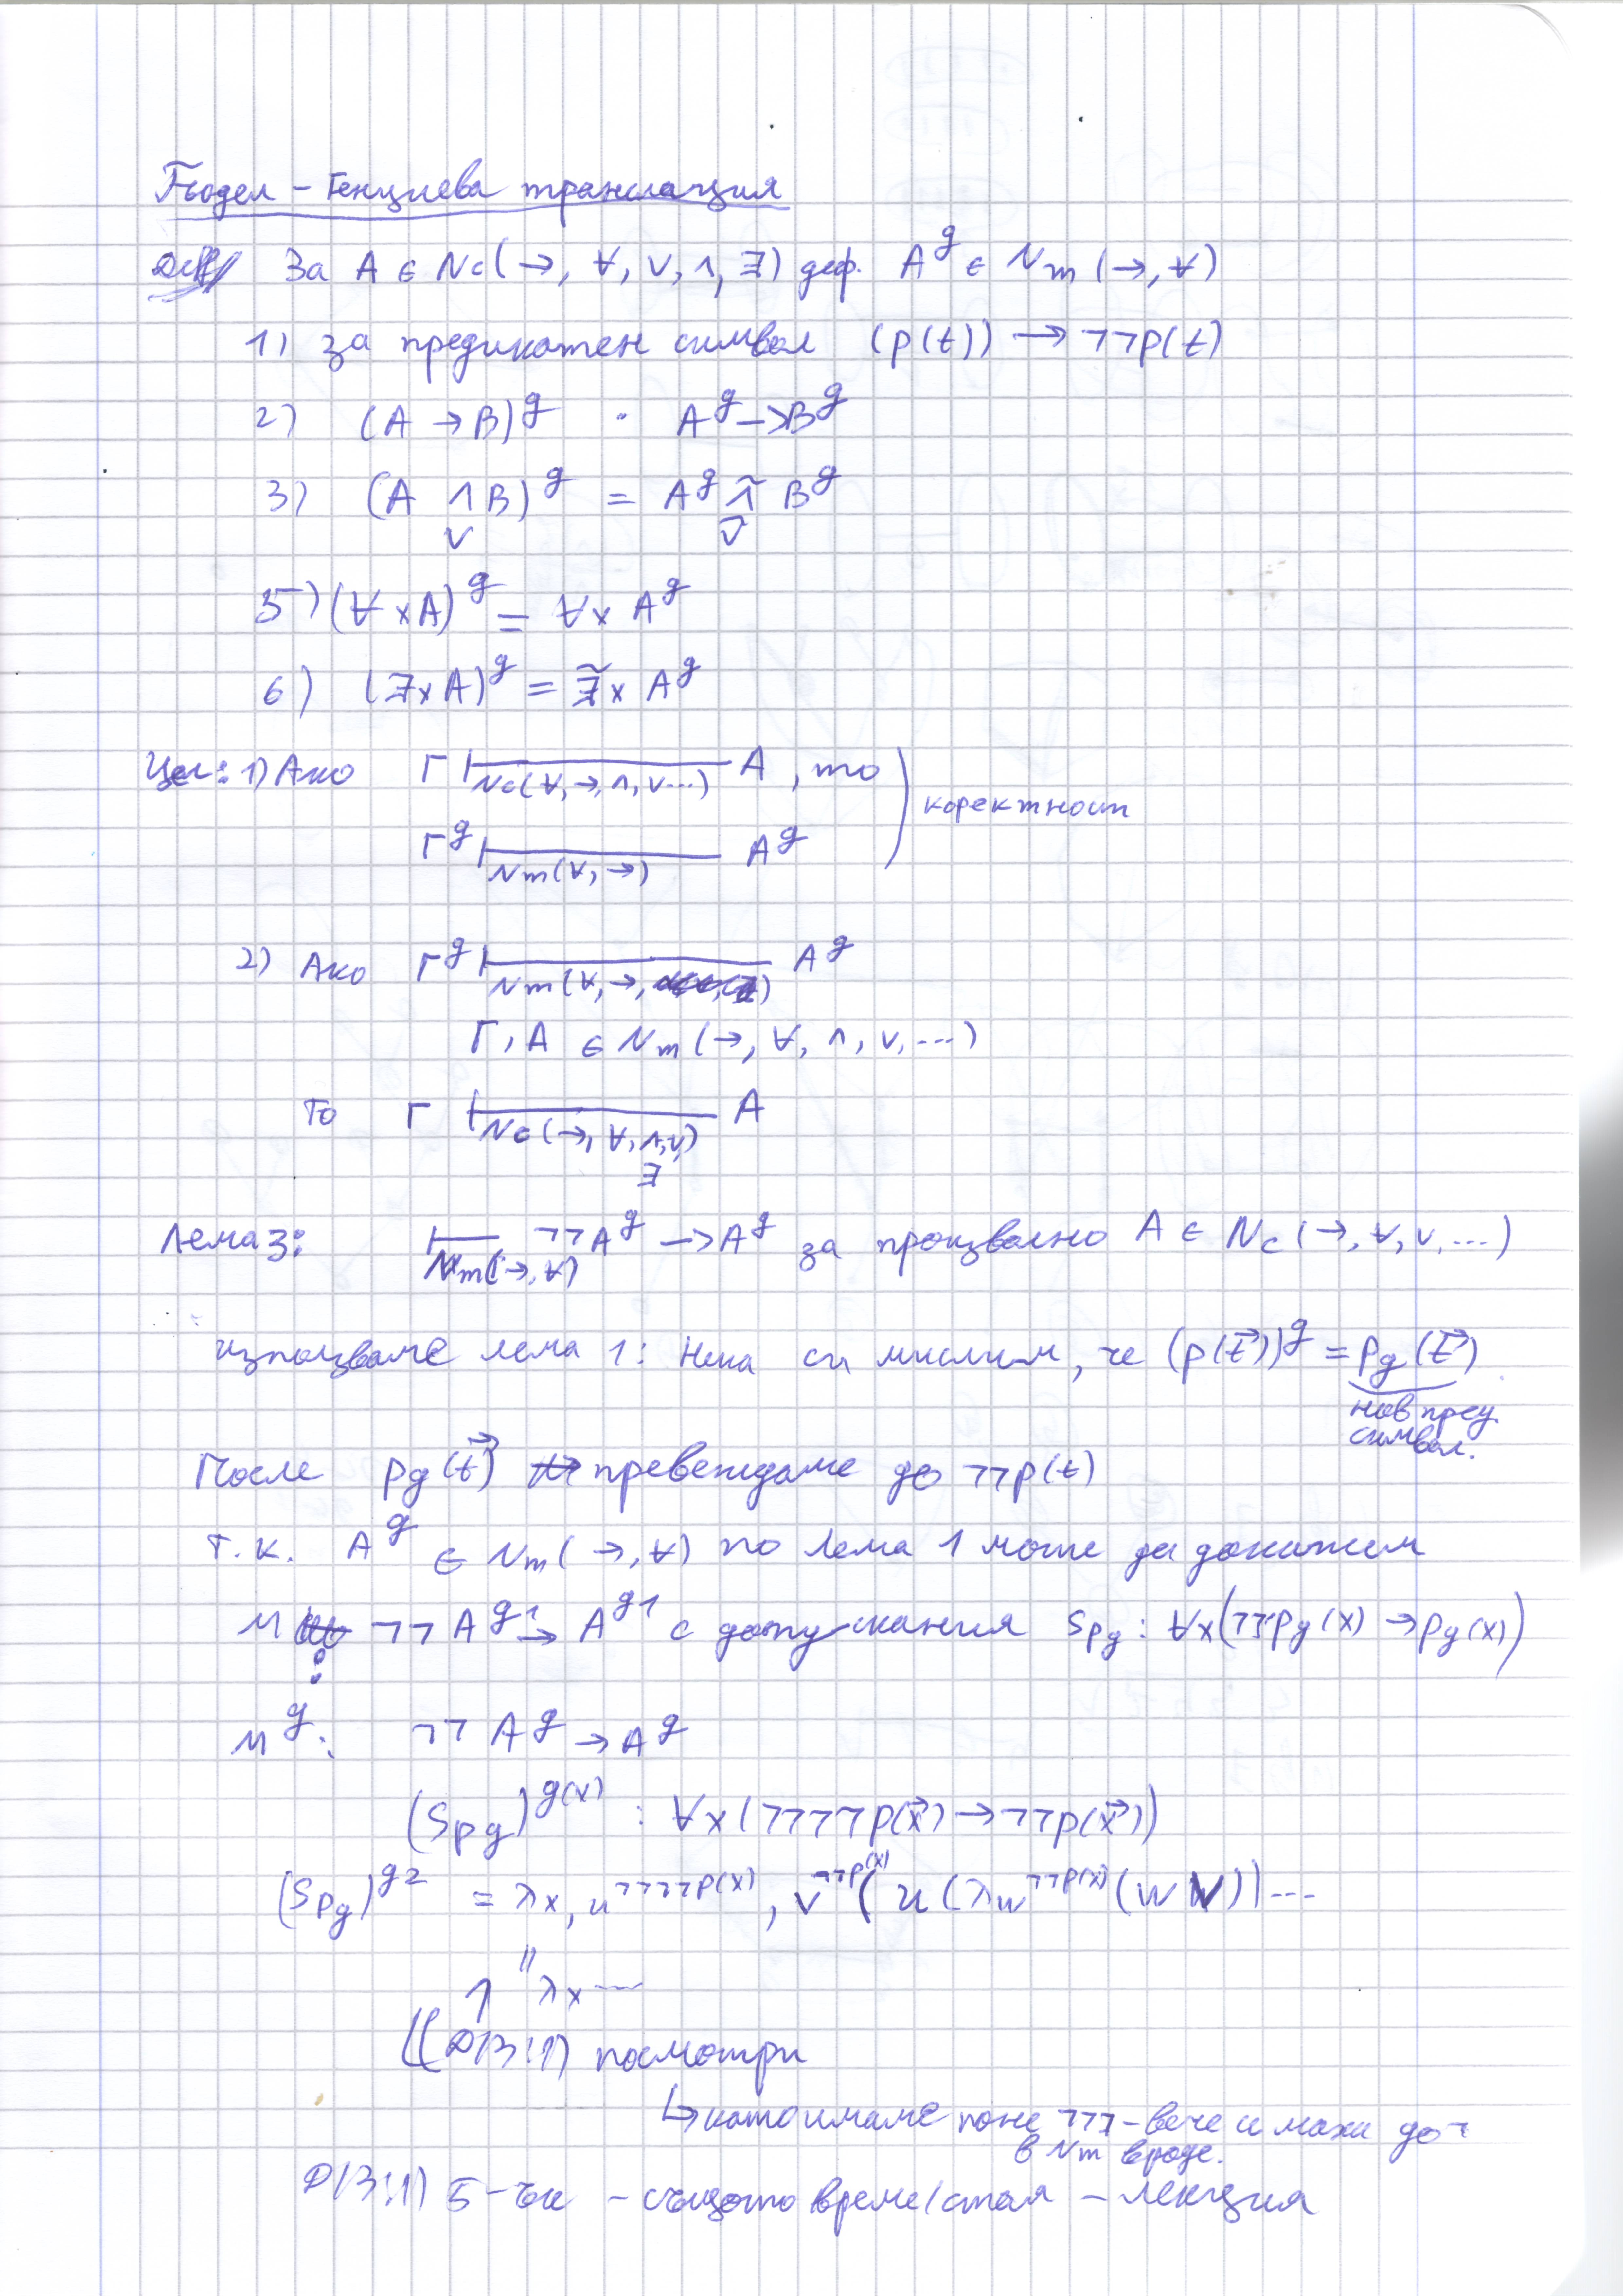 Гьодел – Генциева транслация
Деф За A ∈ Nc(→, ∀, ∨, ∧, ∃) деф. A^g ∈ Nm (→, ∀)
1) за предикатен символ (p(t)) → ¬¬p(t)
2) (A → B)^g · A^g → B^g
3) (A ∧ B)^g = A^g ∧̃ B^g
∨ ∨̃
5) (∀xA)^g = ∀x A^g
6) (∃xA)^g = ∃̃x A^g
Цел: 1) Ако Γ ⊢ A, то
Nc(∀, →, ∧, ∨...)
коректност
Γ^g ⊢ A^g
Nm(∀, →)
2) Ако Γ^g ⊢ A^g
Nm(∀, →, )
Γ, A ∈ Nm (→, ∀, ∧, ∨, ...)
То Γ ⊢ A
Nc(→, ∀, ∧, ∨)
∃
Лема 3: ⊢ ¬¬A^g → A^g за произволно A ∈ Nc (→, ∀, ∨, ...)
Nm(→, ∀)
използваме лема 1: Нека си мислим, че (p(t⃗))^g = p_g(t⃗)
нов пред.
символ.
После p_g(t⃗) превеждаме до ¬¬p(t)
т.к. A^g ∈ Nm (→, ∀) по лема 1 може да докажем
M ¬¬A^g1 → A^g1 с допускания S_pg : ∀x(¬¬p_g(x) → p_g(x))
:
M^g: ¬¬A^g → A^g
(S_pg)^g(x) : ∀x(¬¬¬¬p(x⃗) → ¬¬p(x⃗))
(S_pg)^g2 = λx, u^¬¬¬¬p(x), v^¬¬p(x) (u(λw^¬¬p(x) (w v)) ...
↑ " λx ...
((ДВ!!) посмотри
↳ като имаме поне ¬¬¬ – вече и маха до ¬
в Nm вроде.
ДВ!!) 5-ък – същото време/стая – лекция